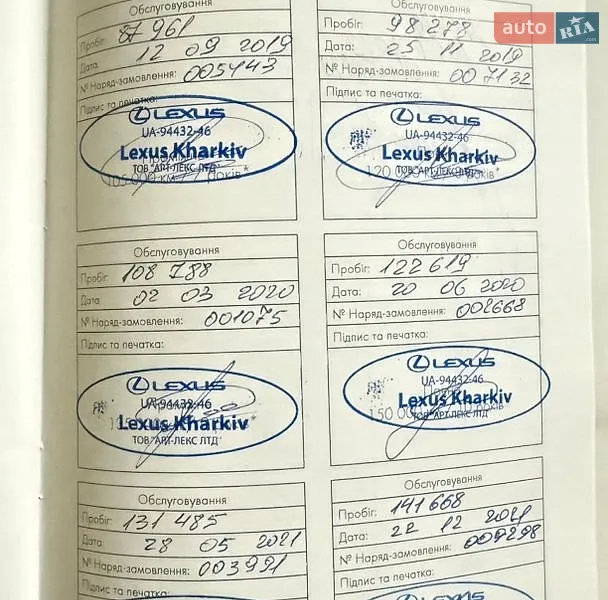 auto RIA.com
Обслуговування
Пробіг: 87 961
Дата: 12 09 2019
№ Наряд-замовлення: 005443
Підпис та печатка:
LEXUS
UA-94432-46
Lexus Kharkiv
ТОВ "АРТ-ЛЕКС ЛТД"
105 000 км років*
Обслуговування
Пробіг: 98 278
Дата: 25 11 2019
№ Наряд-замовлення: 007132
Підпис та печатка:
LEXUS
UA-94432-46
Lexus Kharkiv
ТОВ "АРТ-ЛЕКС ЛТД"
120 0 років*
Обслуговування
Пробіг: 108 788
Дата: 02 03 2020
№ Наряд-замовлення: 001075
Підпис та печатка:
LEXUS
UA-94432-46
Lexus Kharkiv
ТОВ "АРТ-ЛЕКС ЛТД"
Обслуговування
Пробіг: 122 619
Дата: 20 06 2020
№ Наряд-замовлення: 002668
Підпис та печатка:
LEXUS
UA-94432-46
Lexus Kharkiv
150 0 років
ТОВ "АРТ-ЛЕКС ЛТД"
Обслуговування
Пробіг: 131 485
Дата: 28 05 2021
№ Наряд-замовлення: 003991
Підпис та печатка:
Обслуговування
Пробіг: 141 668
Дата: 22 12 2021
№ Наряд-замовлення: 009298
Підпис та печатка:
LEXUS